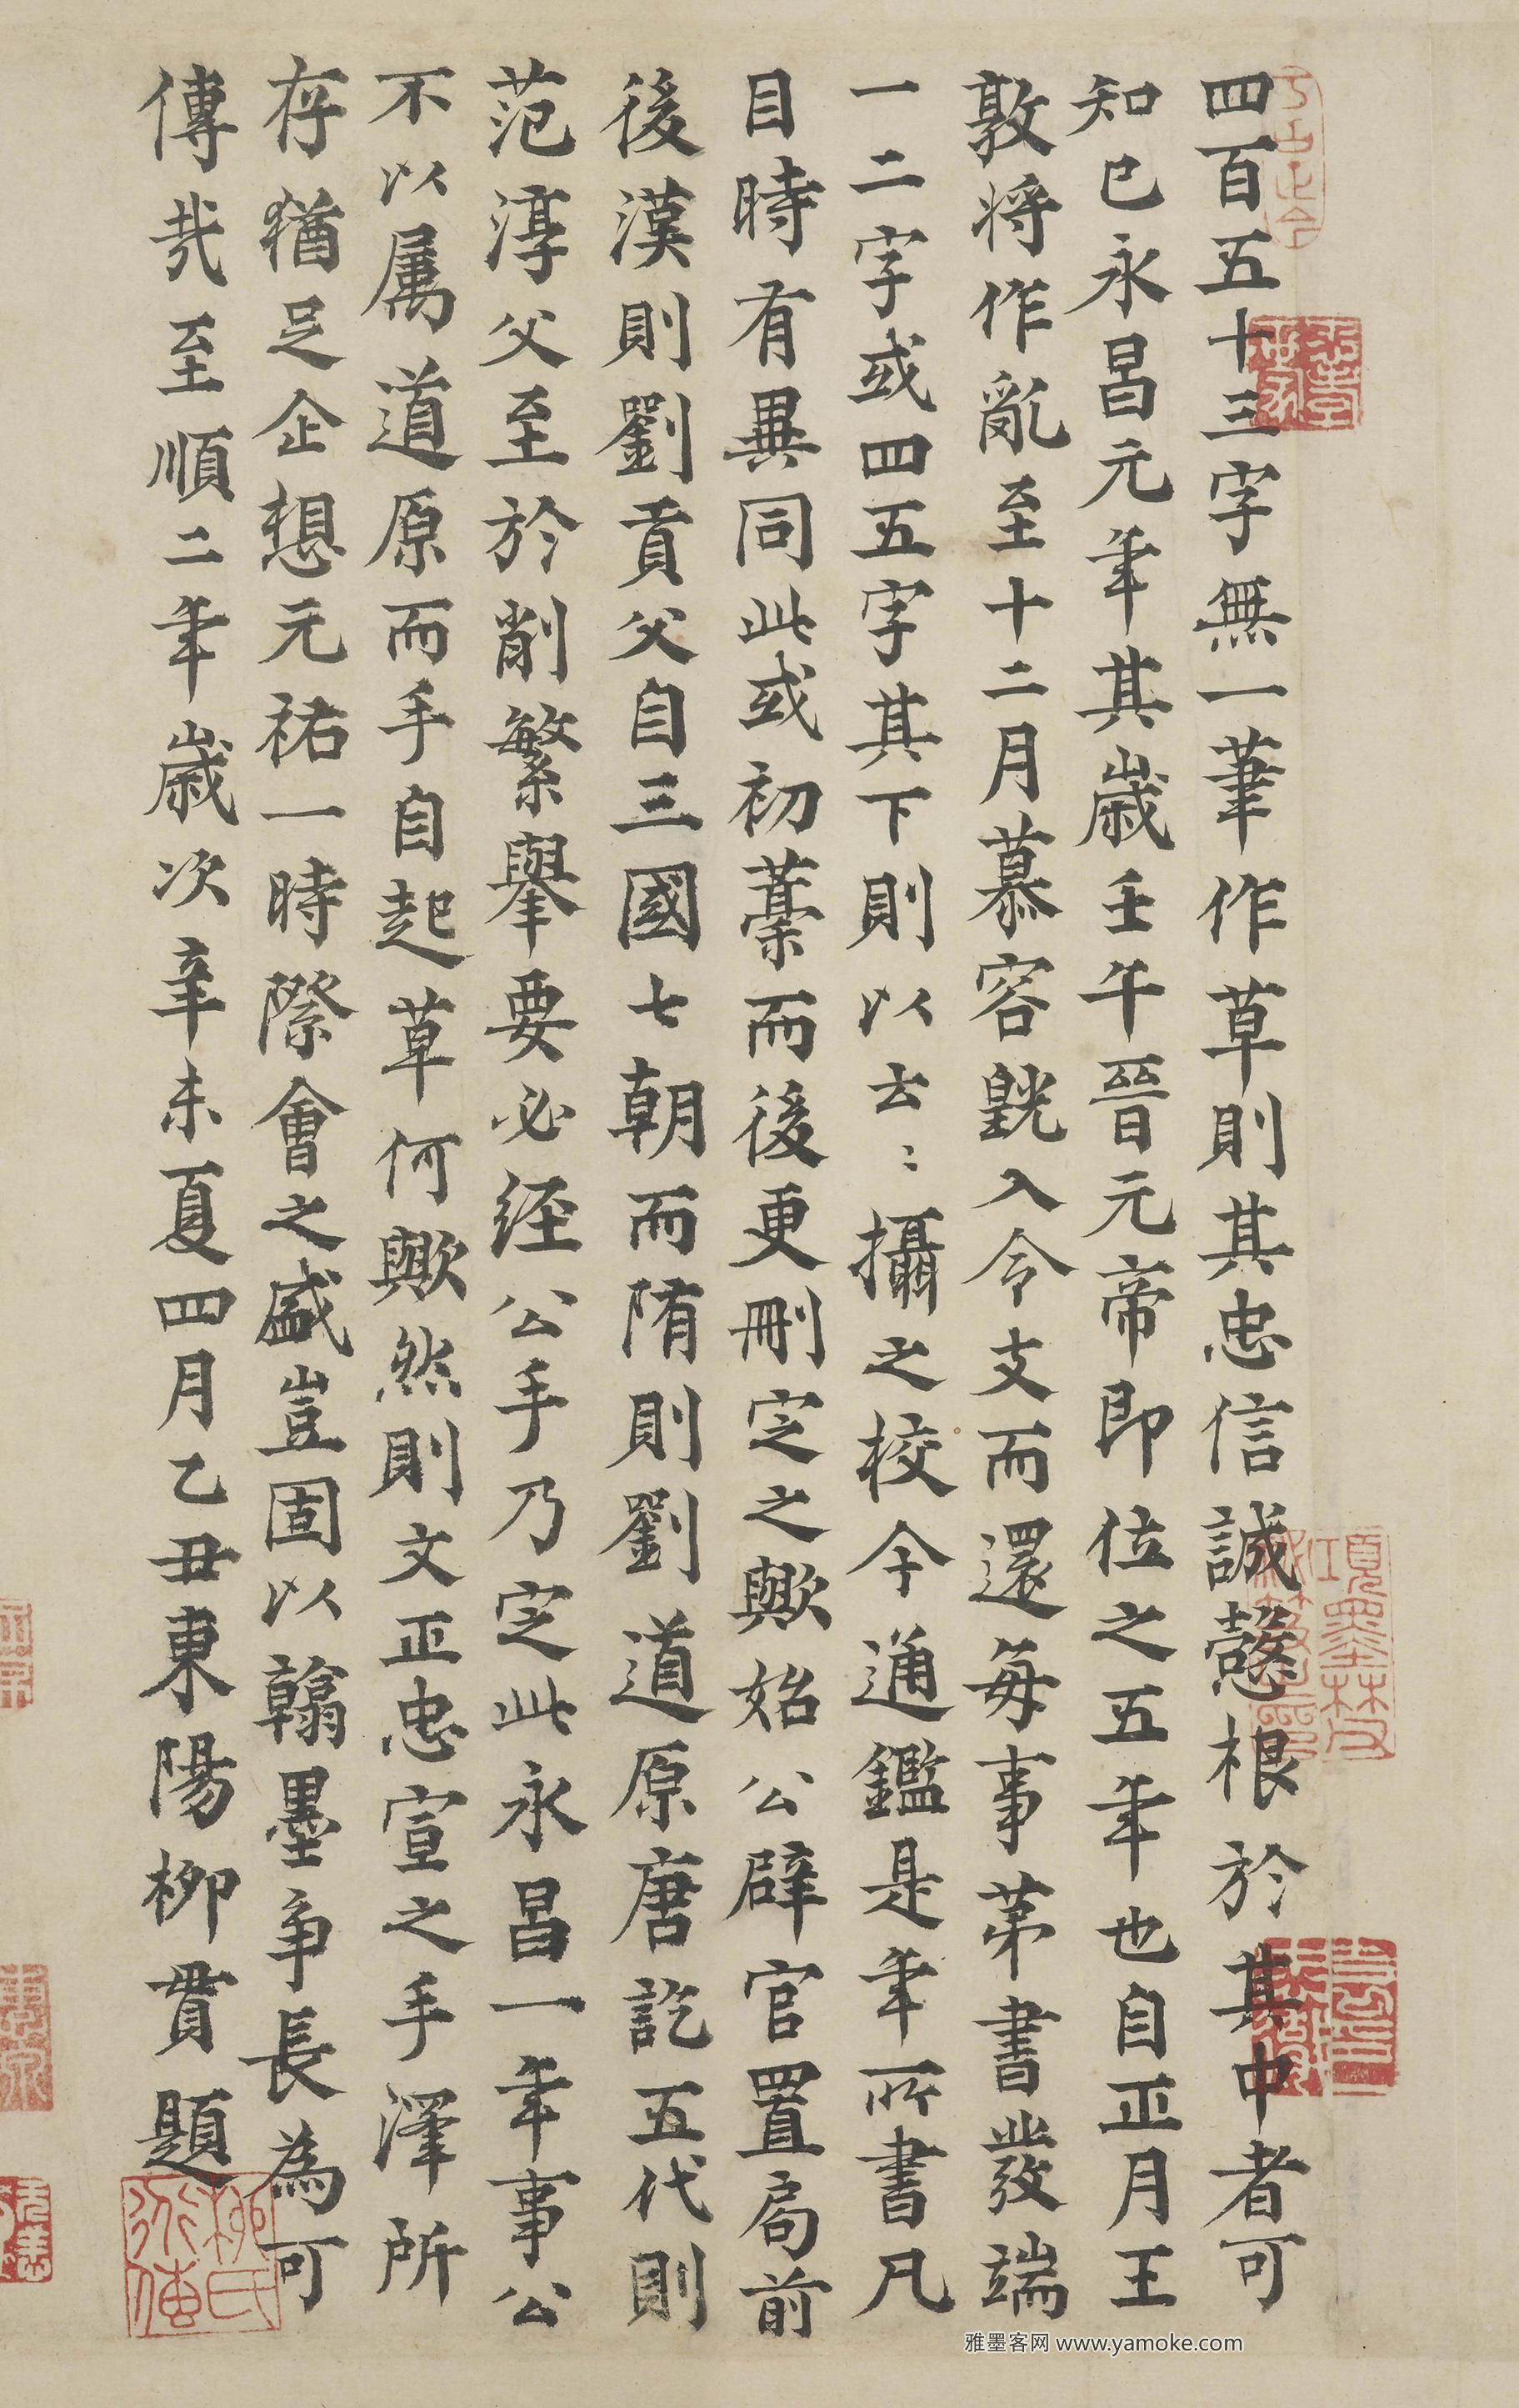 四百五十三字無一筆作草則其忠信誠慤根於其中者可
知已永昌元年其歲壬午晉元帝即位之五年也自正月王
敦將作亂至十二月慕容皝入令支而還每事第書發端
一二字或四五字其下則以云〻攝之校今通鑑是年所書凡
目時有異同此或初藁而後更刪定之歟始公辟官置局前
後漢則劉貢父自三國七朝而隋則劉道原唐訖五代則
范淳父至於削繁舉要必經公手乃定此永昌一年事公
不以屬道原而手自起草何歟然則文正忠宣之手澤所
存猶足企想元祐一時際會之盛豈固以翰墨爭長為可
傳哉至順二年歲次辛未夏四月乙丑東陽柳貫題
柳氏道傳
項墨林父
雅墨客网 www.yamoke.com